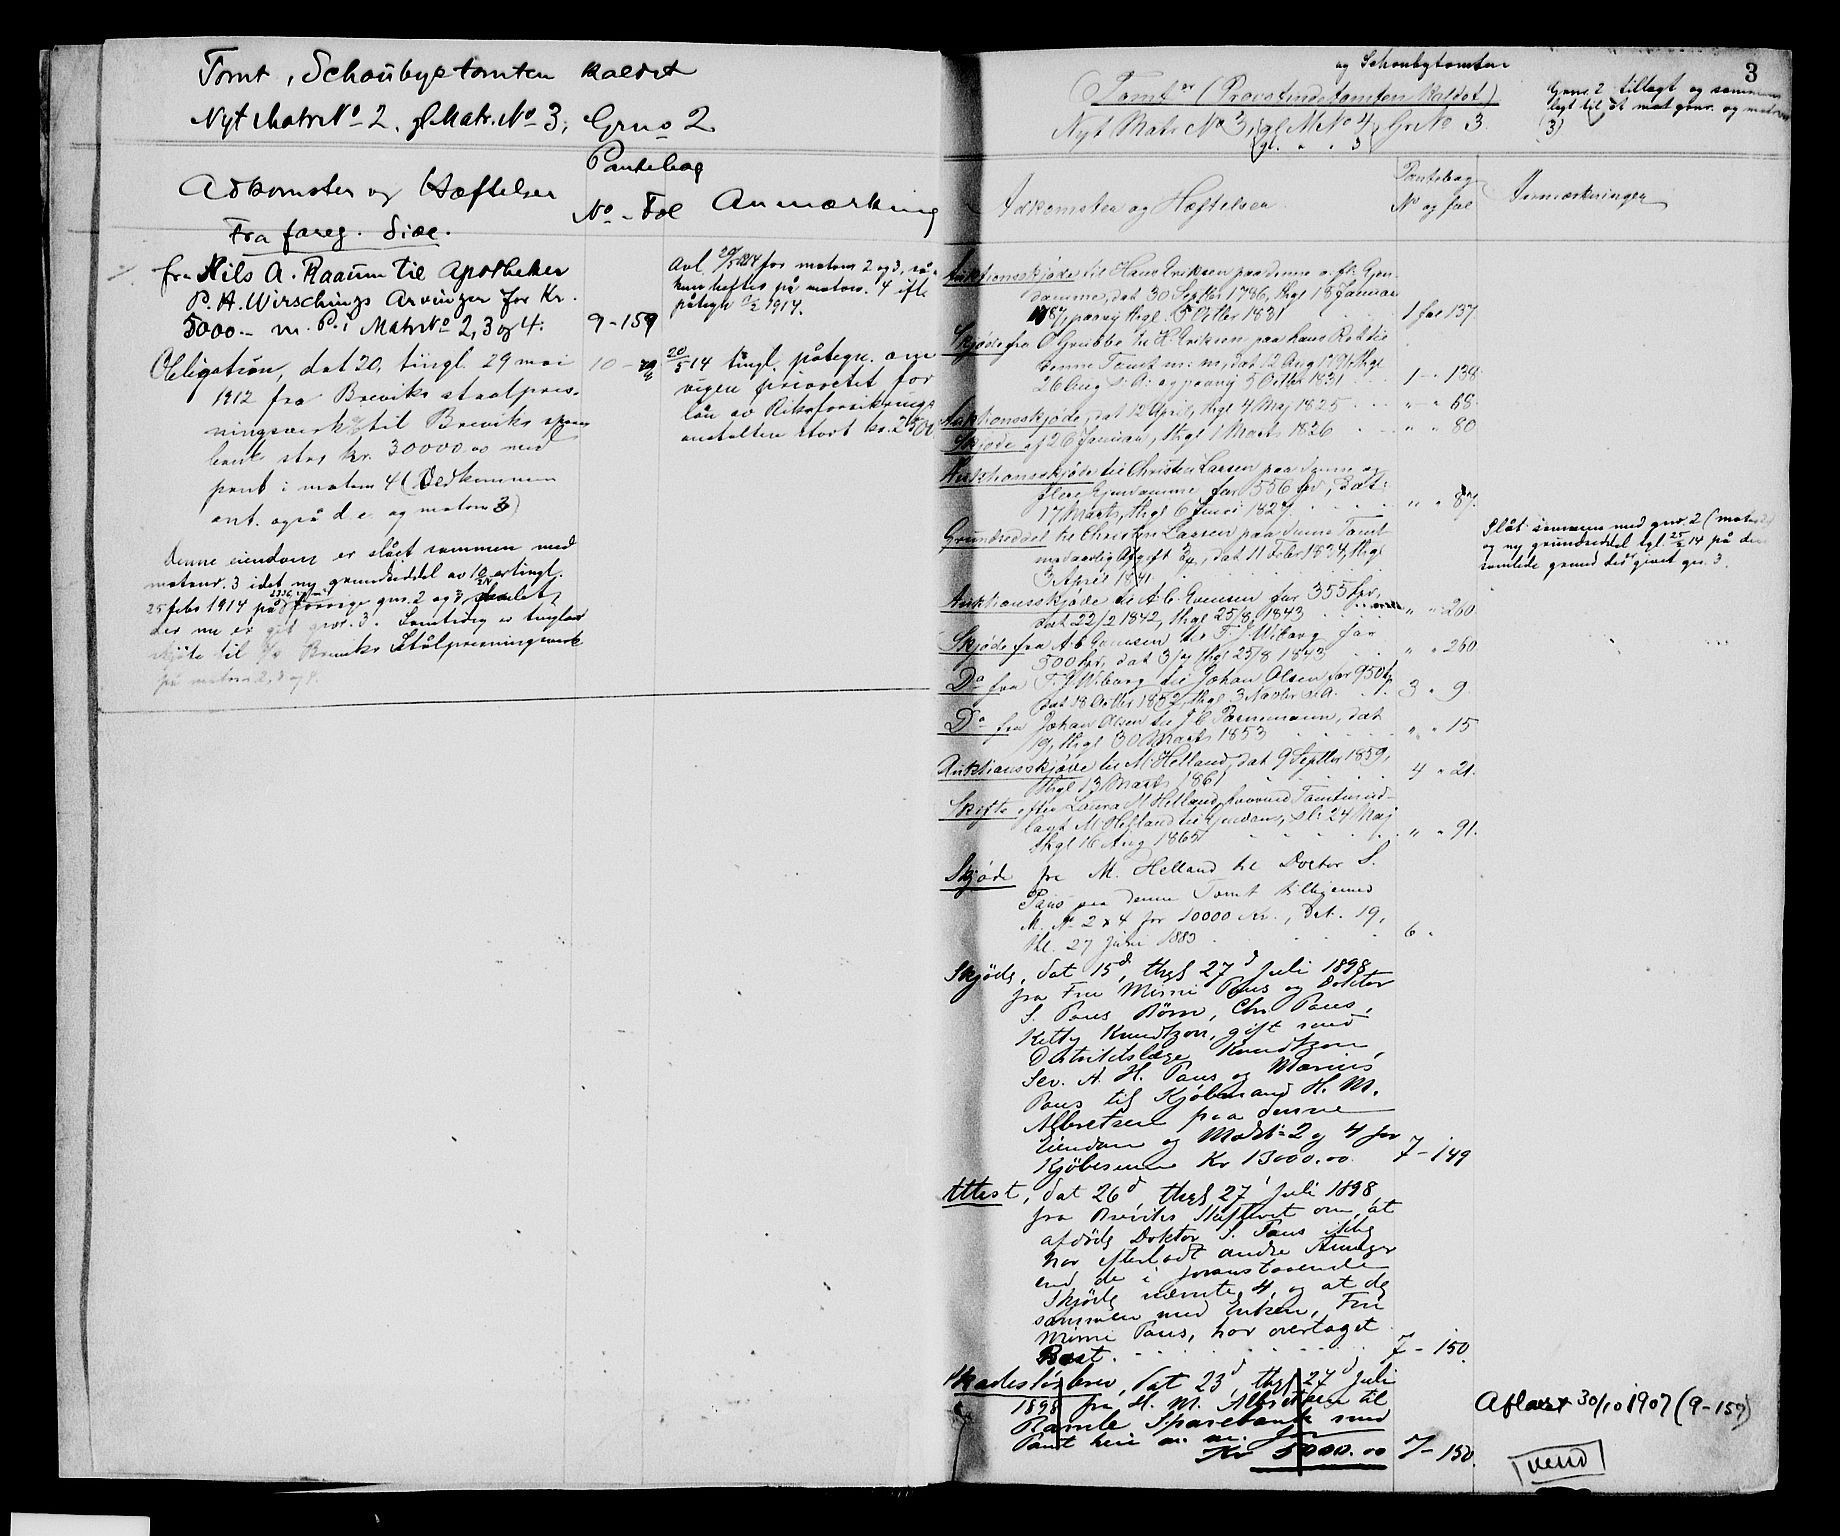 Tomt, Schoubyetomten kaldet
Nyt Matr No 2, gl. Matr. No 3, Grno 2
Adkomster og Hæftelser
Pantebog
No - Fol
Anmærkning
Fra foreg. Side.
fra Nils A. Raaum til Apotheker
P. A. Wirschings Arvinger for Kr.
5000.- m. P. i Matr No 2, 3 og 4.
9-159
Avl. for matrn 2 og 3, så
kun heftes på matrn. 4 ifl.
påtegn 1914.
Obligation, dat 20, tingl. 29 mai
1912 fra Breviks staalpres-
ningsværk til Breviks spare
bank stor kr. 30000.00 med
pant i matrn 4 (Vedkommer
ant. også d. e. og matrn 3)
10 -
20/5 14 tingl. påtegn. om
vigen prioritet for
lån av Riksforsikrings
anstalten stort kr. 2500
Denne eiendom er slået sammen med
matrnr. 3 idet ny grundseddel av 10 er tingl.
25 febr 1914 på forrige gnr. 2 og 3 samlet,
der nu er git gnr. 3. Samtidig er tinglæst
skjøte til A/S Breviks Stålpresningsverk
på matrn 2, 3 og 4.
3
og Schoubytomten
Tomt er (Provstindetomten kaldet)
Nyt Matr No 3, gl M No 4 Gr No 3.
gl. " " 3
Grnr. 2 tillagt og sammen
lagt til et mat gnr. og matrn
3)
Adkomster og Hæftelser
Pantebog
No og fol
Anmærkninger
Auktionsskjøde til Hans Eriksen paa denne o. fl. Ejen-
domme, dat 30 Septbr 1786, thgl 18 Januar
1787, paany thgl. 5 Octbr 1831
1 fol 137.
Skjøde fra O Grubbe til H. Eriksen paa hans Ret til
denne Tomt m: m, dat 12 Aug 1791, thgl
26 Aug s. A. og paany 5 Octbr 1831
1 - " 138.
Auktionsskjøde, dat 12 April, thgl 4 Maj 1825
" - " 68.
Skjøde af 26 Januar, thgl 1 Marts 1826
" " 80
Auktionsskjøde til Christen Larsen paa denne og
flere Ejendomme for 556 Spd, dat:
17 Marts, thgl 6 Juni 1827.
" " 87.
Grundseddel til Christen Larsen paa denne Tomt
mod aarlig Afgift dat 11 Febr 1834, thgl
3 April 1841
Slåt sammen med gnr. 2 (matr 2)
og ny grundseddel tgl. 25/2 14 på den
samlede grund der er givet gnr. 3.
Auktionsskjøde til A. C. Evensen for 355 Spd,
dat 22/2 1842, thgl 25/8 1843
" " 260
Skjøde fra A. C. Evensen til F. J. Wiborg for
500 Spd, dat 3/4 thgl 25/8 1843
" " 260
Do fra F. J. Wiborg til Johan Olsen for 950 Spd
dat 18 Octbr 1852, thgl 3 Novbr s. A.
3 " 9.
Do fra Johan Olsen til J. C. Parnemann, dat
19, thgl 30 Marts 1853
" " 15
Auktionsskjøde til M. Helland, dat 9 Septbr 1859,
thgl 13 Marts 1861
4 " 21.
Skifte efter Laura M Helland, hvorved Tomten ud-
lagt M. Helland til Ejendom, sl. 24 Maj
thgl 16 Aug 1865
" " 91.
Skjøde fra M. Helland til Doctor S.
Paus paa denne Tomt tilligemed
M. No 2 & 4 for 10000 Kr., Dat. 19,
thl. 27 Juni 1883
6 "
Skjøde, dat 15d, thgl 27d Juli 1898
fra Fru Mimi Paus og Doktor
S. Paus Børn, Chr Paus,
Ketty Knudtzon, gift med
Distriktslæge Knudtzon,
Sev. A. H. Paus og Marius
Paus til Kjøbmand H. M.
Albretsen paa denne
Eiendom og Mat No 2 og 4 for
Kjøbesum Kr 13000.00
7 - 149
Attest, dat 26d, thgl 27 Juli 1898
fra Breviks Skifteret om, at
afdøde Doktor S. Paus ikke
har efterladt andre Arvinger
end de i foranstaaende
Skjøde nævnte 4, og at de
sammen med Enken, Fru
Mimi Paus, har overtaget
Boet.
7 - 150.
Skadesløsbrev, dat 23d, thgl 27d Juli
1898 fra H. M. Albretsen til
Bamle Sparebank med
Pant heri m. m. for
Kr 5000.00
7 - 150.
Aflæst 30/10 1907 (9-157)
vend